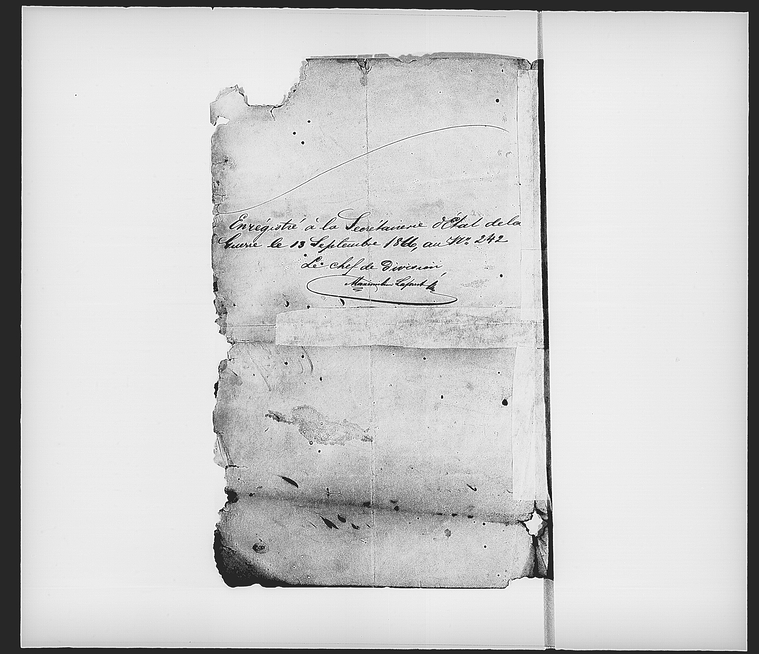 Enrégistré à la Secrétairerie d'État de la
Guerre le 13 Septembre 1866, au Nº 242
Le chef de Division,